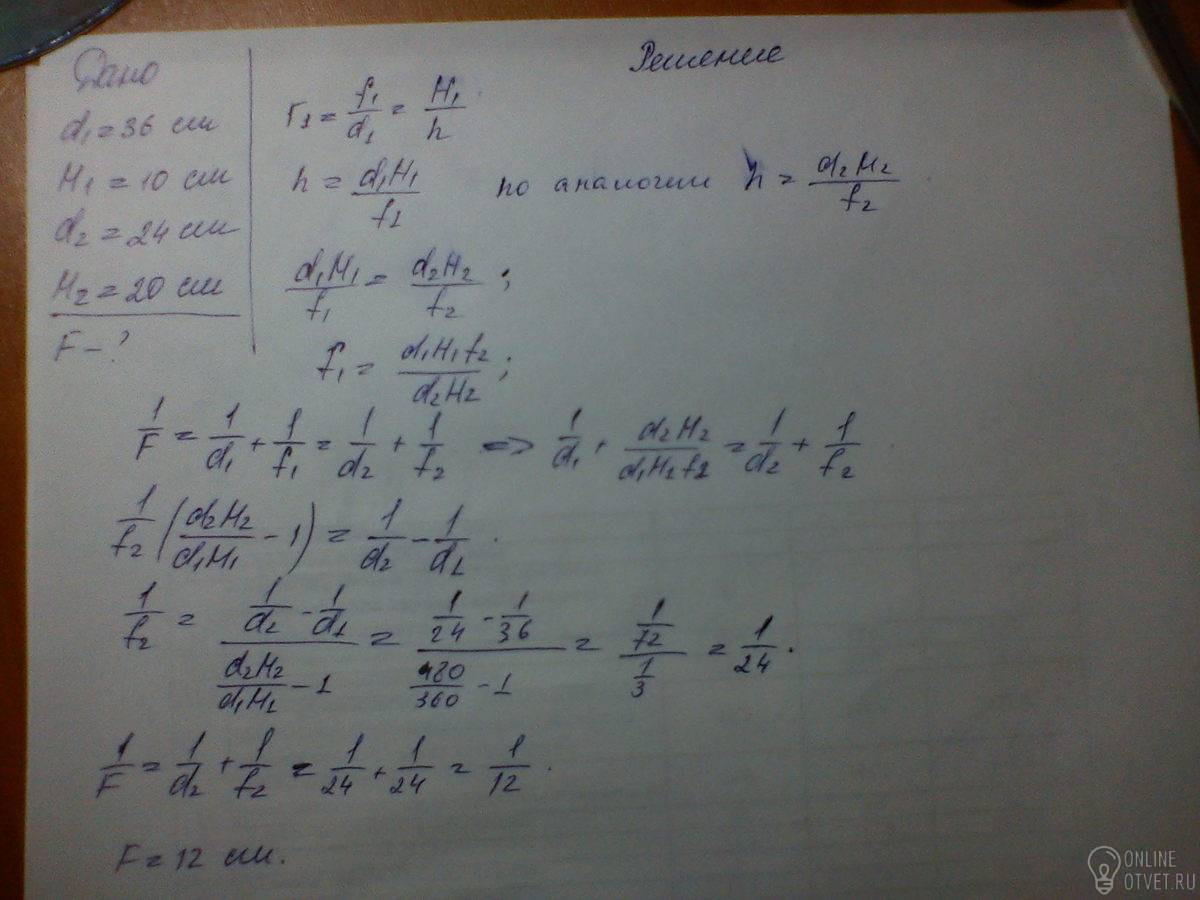 Дано
d₁ = 36 см
H₁ = 10 см
d₂ = 24 см
H₂ = 20 см
F - ?
Решение
Г₁ = f₁/d₁ = H₁/h
h = d₁H₁/f₁ по аналогии h = d₂H₂/f₂
d₁H₁/f₁ = d₂H₂/f₂ ;
f₁ = d₁H₁f₂/d₂H₂ ;
1/F = 1/d₁ + 1/f₁ = 1/d₂ + 1/f₂ => 1/d₁ + d₂H₂/d₁H₁f₂ = 1/d₂ + 1/f₂
1/f₂ (d₂H₂/d₁H₁ - 1) = 1/d₂ - 1/d₁ .
1/f₂ = (1/d₂ - 1/d₁)/(d₂H₂/d₁H₁ - 1) = (1/24 - 1/36)/(480/360 - 1) = (1/72)/(1/3) = 1/24 .
1/F = 1/d₂ + 1/f₂ = 1/24 + 1/24 = 1/12 .
F = 12 см.
ONLINE
OTVET.RU